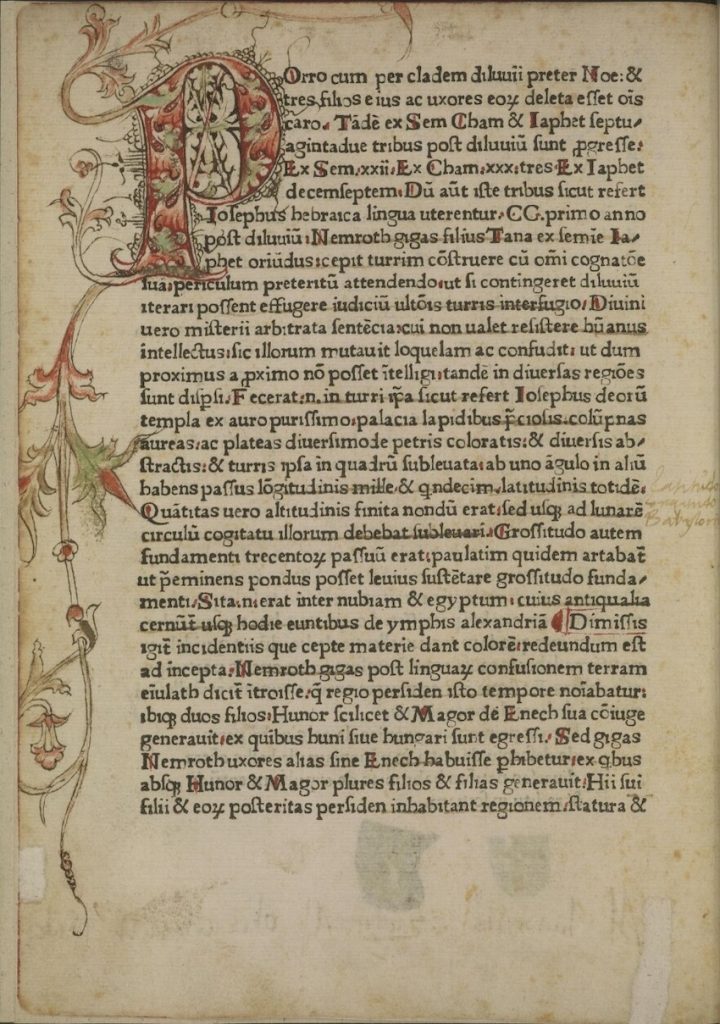 POrro cum per cladem diluuii preter Noe: &
tres filios eius ac uxores eoꝝ deleta esset oīs
caro. Tādē ex Sem Cham & Iaphet septu/
agintadue tribus post diluuiū sunt ꝓgresse.
Ex Sem .xxii. Ex Cham .xxx. tres Ex Iaphet
decemseptem. Dū aūt iste tribus sicut refert
Iosephus hebraica lingua uterentur. CG. primo anno
post diluuiū: Nemroth gigas filius Tana ex semīe Ia/
phet oriūdus: cepit turrim cōstruere cū om̄i cognatōe
sua: periculum preteritū attendendo: ut si contingeret diluuiū
iterari possent effugere iudiciū ultōis turris interfugio. Diuini
uero misterii arbitrata sentēcia: cui non ualet resistere hūanus
intellectus: sic illorum mutauit loquelam ac confudit: ut dum
proximus a ꝓximo nō posset ītelligi: tandē in diuersas regiōes
sunt disp̄si. Fecerat .n. in turri ip̄a sicut refert Iosephus deorū
templa ex auro purissimo: palacia lapidibus p̄ciosis. colūpnas
aureas: ac plateas diuersimode petris coloratis: & diuersis ab/
stractis: & turris ipsa in quadrū subleuata: ab uno āgulo in aliū
habens passus lōgitudinis mille & qndecim. latitudinis totidē.
Quātitas uero altitudinis finita nondū erat: sed usqꝫ ad lunarē
circulū cogitatu illorum debebat subleuari. Grossitudo autem
fundamenti trecentoꝝ passuū erat: paulatim quidem artabat̄
ut p̄eminens pondus posset leuius sustētare grossitudo funda/
menti. Sita .n. erat inter nubiam & egyptum: cuius antiqualia
cernūt usqꝫ hodie euntibus de ymphis alexandriā Dimissis
igit̄ incidentiis que cepte materie dant colorē: redeundum est
ad incepta. Nemroth gigas post linguaꝝ confusionem terram
eiulath dicit̄ ītroisse: q̄ regio persiden isto tempore noīabatur:
ibiqꝫ duos filios: Hunor scilicet & Magor de Enech sua cōiuge
generauit: ex quibus huni siue hungari sunt egressi. Sed gigas
Nemroth uxores alias sine Enech habuisse ꝑhibetur: ex qbus
absqꝫ Hunor & Magor plures filios & filias generauit. Hii sui
filii & eoꝝ posteritas persiden inhabitant regionem: statura &
Babylon